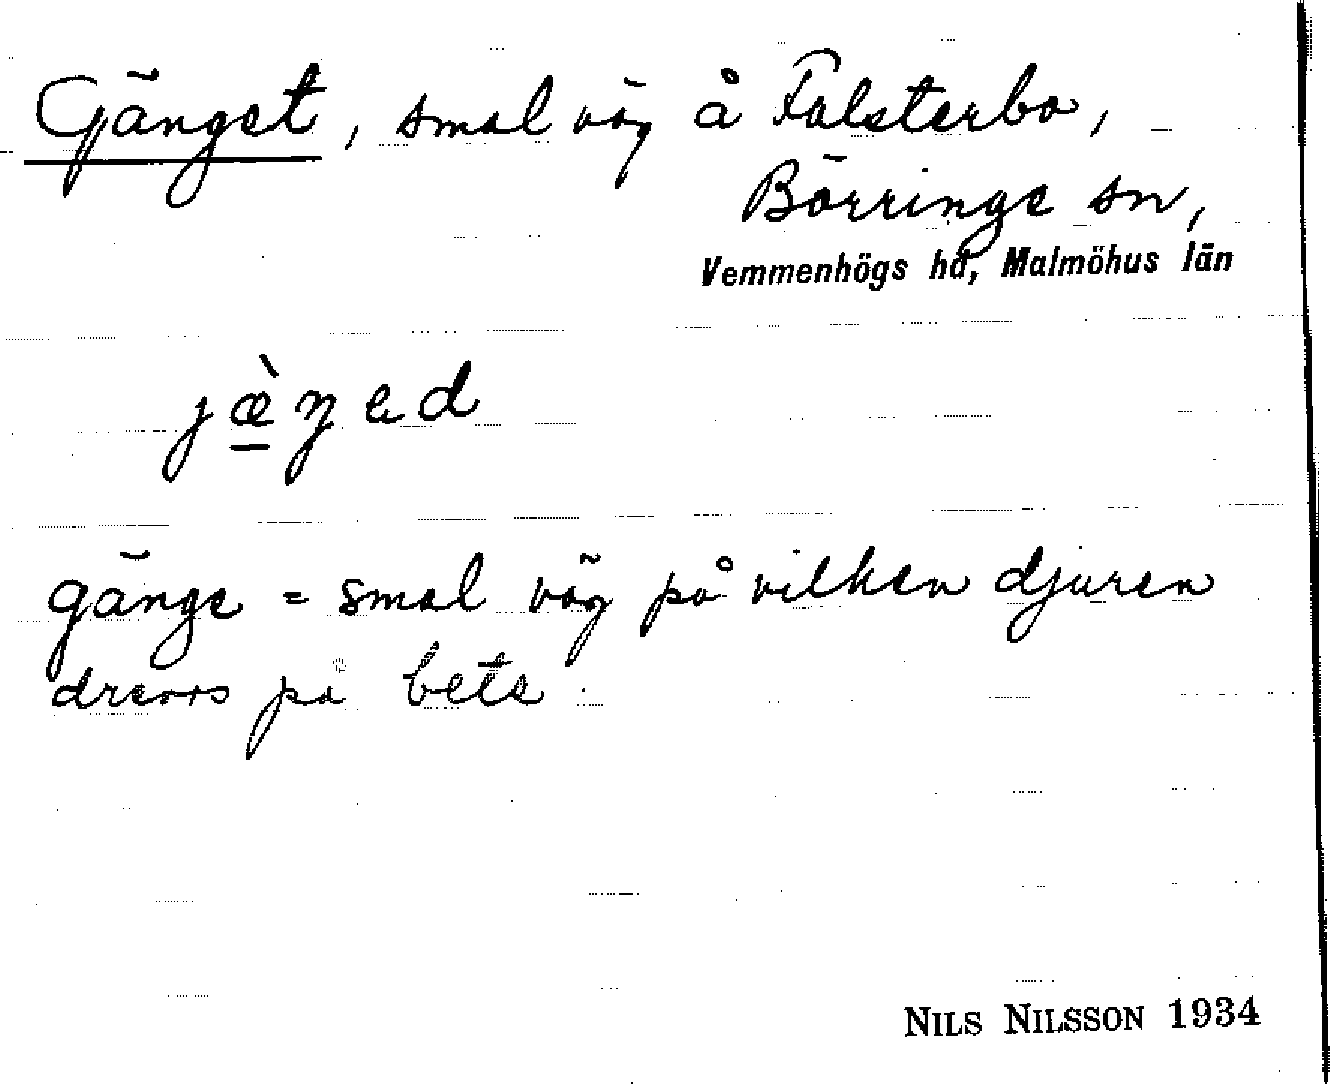 Gänget, smal väg å Falsterbo,
Börringe sn,
Vemmenhögs hd, Malmöhus län
jæ̀ŋed
gänge = smal väg på vilken djuren
drevos på bete.
NILS NILSSON 1934